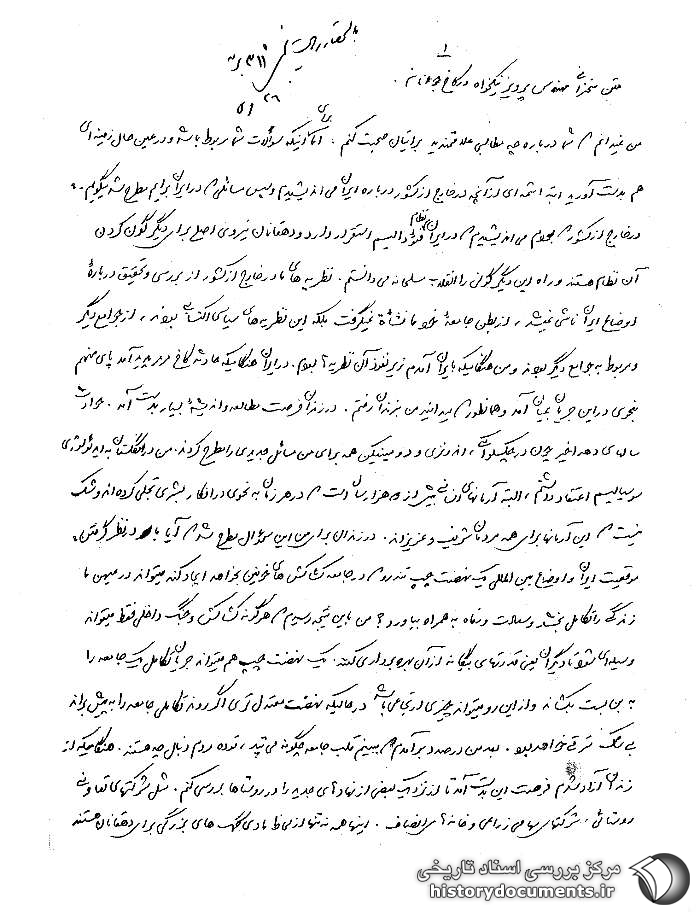 ۱
متن سخنرانی مهندس پرویز نیکخواه در کاخ جوانان.
من نمیدانم که شما درباره چه مطالبی علاقمندید برایتان صحبت کنم. اما برای اینکه سؤالات شما مربوط باشد و در عین حال زمینه ای
هم بدست آورید ابتدا شمه ای از آنچه در خارج از کشور درباره ایران می اندیشیدم و سپس مسائلی که در ایران برایم مطرح شد میگویم.
در خارج از کشور که بودم می اندیشیدم که در ایران نظام فئودالیسم استقرار دارد و دهقانان نیروی اصلی برای دیگرگون کردن
آن نظام هستند و راه این دیگرگونی را انقلاب مسلحانه می دانستم. نظریه های ما در خارج از کشور از بررسی و تحقیق درباره
اوضاع ایران ناشی نمیشد، از بطن جامعه خود ما نشأة نمیگرفت بلکه این نظریه های سیاسی اکتسابی بودند، از جوامع دیگر
و مربوط به جوامع دیگر بودند و من هنگامیکه بایران آمدم زیر نفوذ آن نظریه ها بودم. در ایران هنگامیکه حادثه کاخ مرمر پدید آمد پای منهم
بنحوی در این جریان بمیان آمد و همانطور که میدانید من بزندان رفتم. در زندان فرصت مطالعه و اندیشه بسیار بدست آمد. حوادث
سالهای دهه اخیر چون در چکسلواکی، اندونزی و دومینیکن همه برای من مسائل جدیدی را مطرح کردند. من در انگلستان به ایدئولوژی
سوسیالیسم اعتقاد داشتم، البته آرمانهای انسانی بیش از ۵ هزار سال است که در هر زمان به نحوی در افکار بشری تجلی کرده اند و شک
نیست که این آرمانها برای همه مردمان شریف و عزیزاند. در زندان برای من این سؤال مطرح شد که آیا با در نظر گرفتن
موقعیت ایران و اوضاع بین المللی یک نهضت چپ تندرو که در جامعه کشاکش های خونین بخواهد ایجاد کند میتواند در میهن ما
زندگی را تکامل بخشد و سعادت و رفاه به همراه بیاورد؟ من باین نتیجه رسیدم که هر گونه کشاکش و جنگ داخلی فقط میتواند
وسیله ای شود تا دیگران یعنی قدرتهای بیگانه از آن بهره برداری کنند. یک نهضت چپ هم میتواند جریان تکامل یک جامعه را
به بن بست بکشاند و از این رو میتواند چیزی ارتجاعی باشد در حالیکه نهضت معتدل تری اگر روند تکاملی جامعه را به پیش براند
بی شک مترقی خواهد بود. بعد من در صدد برآمدم که ببینم قلب جامعه چگونه می تپد، توده مردم دنبال چه هستند. هنگامیکه از
زندان آزاد شدم فرصت این بدست آمد تا از نزدیک بعضی از نهادهای جدید را در روستاها بررسی کنم. مثل شرکتهای تعاونی
روستائی، شرکتهای سهامی زراعی و خانه های انصاف. اینها همه نه تنها از لحاظ مادی کمک های بزرگی برای دهقانان هستند
مرکز بررسی اسناد تاریخی
historydocuments.ir